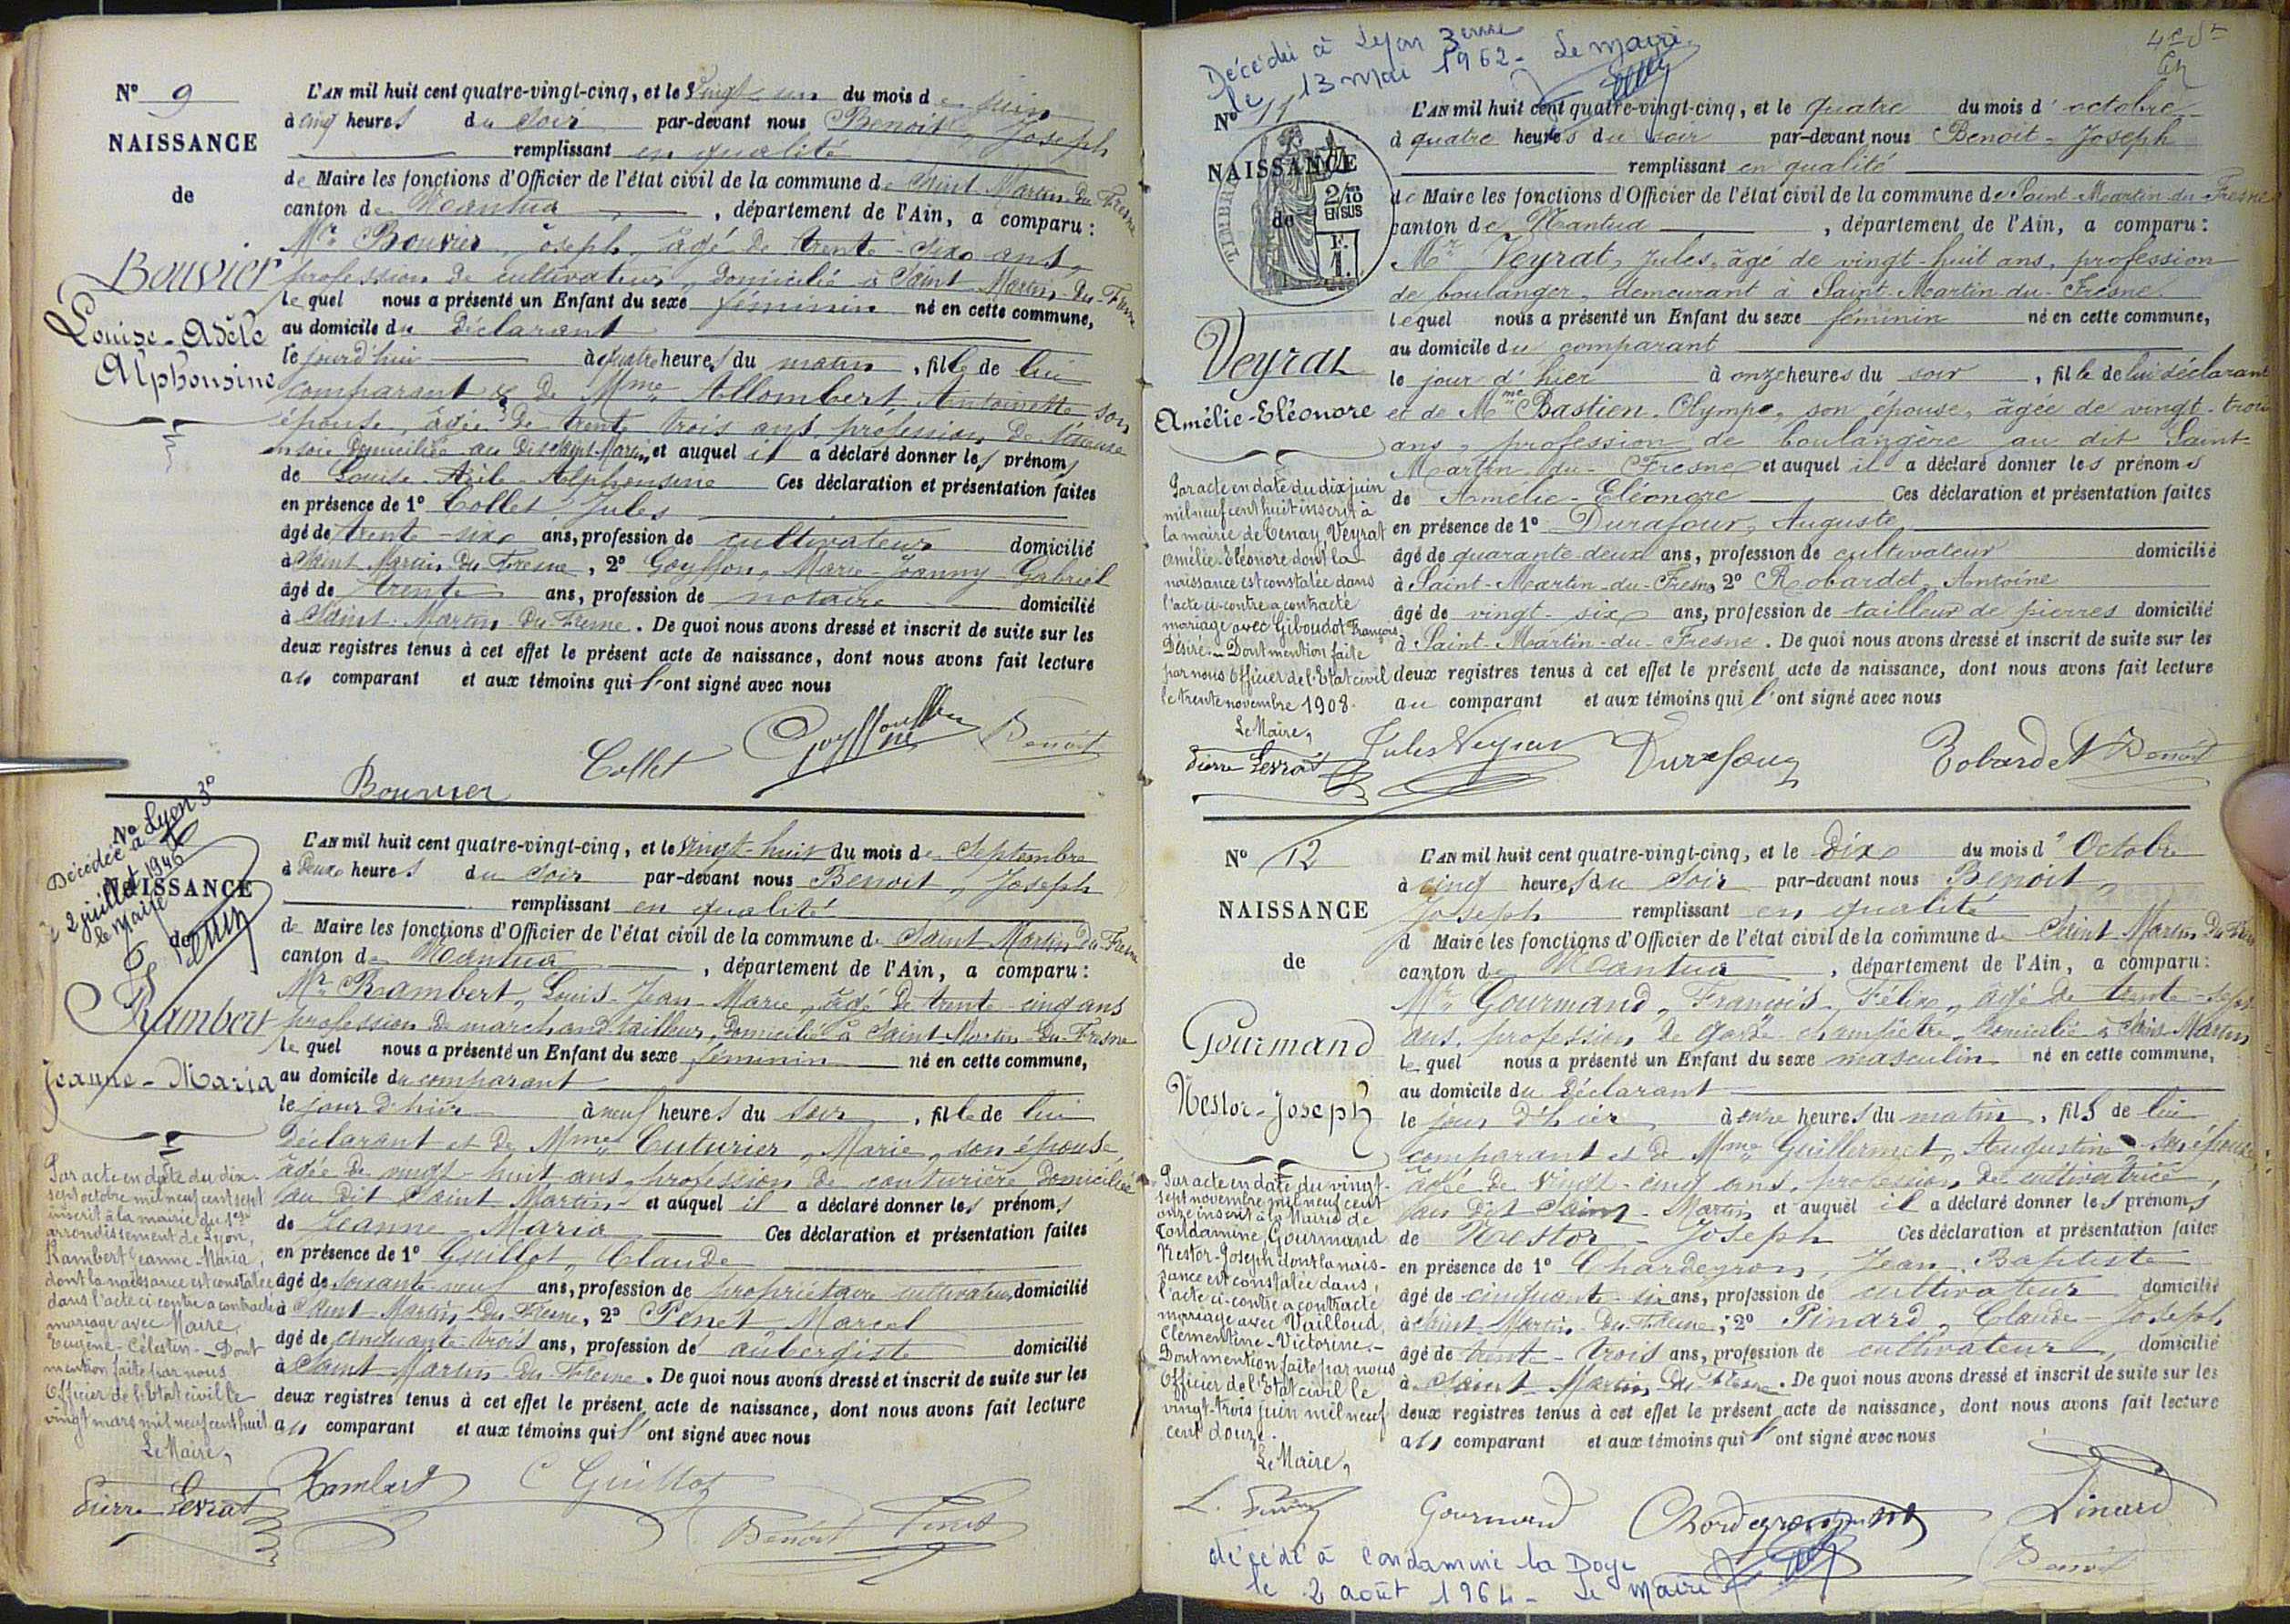 N° 9
NAISSANCE
de
Bouvier
Louise-Adèle
Alphonsine
L'AN mil huit cent quatre-vingt-cinq, et le vingt-un du mois de juin
à cinq heures du soir par-devant nous Benoit, Joseph
remplissant en qualité
de Maire les fonctions d'Officier de l'état civil de la commune de Saint Martin du Fresne
canton de Nantua, département de l'Ain, a comparu:
Mr Bouvier, Joseph, âgé de trente-six ans,
profession de cultivateur, domicilié à Saint Martin-du-Fresne
lequel nous a présenté un Enfant du sexe féminin né en cette commune,
au domicile du déclarant
le jourd'hui à quatre heures du matin, fille de lui
comparant & de Mme Allombert Antoinette son
épouse, âgée de trente trois ans, profession de tisseuse
en soie domiciliée au dit Saint-Martin, et auquel il a déclaré donner les prénoms
de Louise-Adèle-Alphonsine Ces déclaration et présentation faites
en présence de 1° Collet Jules
âgé de trente-six ans, profession de cultivateur domicilié
à Saint Martin du Fresne, 2° Goyffon, Marie-Joanny-Gabriel
âgé de trente ans, profession de notaire domicilié
à Saint-Martin-du-Fresne. De quoi nous avons dressé et inscrit de suite sur les
deux registres tenus à cet effet le présent acte de naissance, dont nous avons fait lecture
au comparant et aux témoins qui l'ont signé avec nous
Bouvier Collet Goyffon Benoit
Décédée à Lyon 3°
le 2 juillet 1946
le Maire
N°
NAISSANCE
de
Rambert
Jeanne-Maria
Par acte en date du dix-
sept octobre mil neuf cent sept
inscrit à la mairie du 1er
arrondissement de Lyon,
Rambert Jeanne-Maria,
dont la naissance est constatée
dans l'acte ci contre a contracté
mariage avec Maire,
Eugène-Célestin.- Dont
mention faite par nous
Officier de l'Etat civil le
vingt mars mil neuf cent huit
Le Maire,
Pierre Levrat
L'AN mil huit cent quatre-vingt-cinq, et le vingt-huit du mois de Septembre
à deux heures du soir par-devant nous Benoit, Joseph
remplissant en qualité
de Maire les fonctions d'Officier de l'état civil de la commune de Saint Martin du Fresne
canton de Nantua, département de l'Ain, a comparu:
Mr Rambert, Louis-Jean-Marie, âgé de trente-cinq ans
profession de marchand tailleur, domicilié à Saint-Martin-du-Fresne
lequel nous a présenté un Enfant du sexe féminin né en cette commune,
au domicile du comparant
le jour d'hier à neuf heures du soir, fille de lui
déclarant et de Mme Cuturier, Marie, son épouse,
âgée de vingt-huit ans, profession de couturière domiciliée
au dit Saint Martin et auquel il a déclaré donner les prénoms
de Jeanne-Maria Ces déclaration et présentation faites
en présence de 1° Guillot, Claude
âgé de soixante-neuf ans, profession de propriétaire cultivateur domicilié
à Saint-Martin-du-Fresne, 2° Penet, Marcel
âgé de cinquante-trois ans, profession de aubergiste domicilié
à Saint Martin du Fresne. De quoi nous avons dressé et inscrit de suite sur les
deux registres tenus à cet effet le présent acte de naissance, dont nous avons fait lecture
au comparant et aux témoins qui l'ont signé avec nous
Rambert C Guillot Benoit Penet
Décédée à Lyon 3eme
le 13 mai 1962 - Le maire
N° 11
NAISSANCE
de
TIMBRE
2/10
EN SUS
Veyrat
Amélie-Eléonore
Par acte en date du dix juin
mil neuf cent huit inscrit à
la mairie de Tenay, Veyrat
Amélie-Eléonore dont la
naissance est constatée dans
l'acte ci-contre a contracté
mariage avec Giboudot François
Désiré.- Dont mention faite
par nous Officier de l'Etat civil
le trente novembre 1908.
Le Maire,
Pierre Levrat
L'AN mil huit cent quatre-vingt-cinq, et le quatre du mois d'octobre
à quatre heures du soir par-devant nous Benoit-Joseph
remplissant en qualité
de Maire les fonctions d'Officier de l'état civil de la commune de Saint-Martin-du-Fresne
canton de Nantua, département de l'Ain, a comparu:
Mr Veyrat, Jules, âgé de vingt-huit ans, profession
de boulanger, demeurant à Saint-Martin-du-Fresne
lequel nous a présenté un Enfant du sexe féminin né en cette commune,
au domicile du comparant
le jour d'hier à onze heures du soir, fille de lui déclarant
et de Mme Bastien-Olympe, son épouse, âgée de vingt-trois
ans, profession de boulangère au dit Saint-
Martin-du-Fresne et auquel il a déclaré donner les prénoms
de Amélie-Eléonore Ces déclaration et présentation faites
en présence de 1° Durafour, Auguste
âgé de quarante-deux ans, profession de cultivateur domicilié
à Saint-Martin-du-Fresne, 2° Robardet, Antoine
âgé de vingt-six ans, profession de tailleur de pierres domicilié
à Saint-Martin-du-Fresne. De quoi nous avons dressé et inscrit de suite sur les
deux registres tenus à cet effet le présent acte de naissance, dont nous avons fait lecture
au comparant et aux témoins qui l'ont signé avec nous
Jules Veyrat Durafour Robardet Benoit
N° 12
NAISSANCE
de
Gourmand
Nestor-Joseph
Par acte en date du vingt-
sept novembre mil neuf cent
onze inscrit à la Mairie de
Condamine, Gourmand
Nestor-Joseph dont la nais-
sance est constatée dans
l'acte ci-contre a contracté
mariage avec Vailloud,
Clémentine-Victorine.-
Dont mention faite par nous
Officier de l'Etat civil le
vingt-trois juin mil neuf
cent douze.
Le Maire,
L'AN mil huit cent quatre-vingt-cinq, et le dix du mois d'Octobre
à cinq heures du soir par-devant nous Benoit,
Joseph remplissant en qualité
d Maire les fonctions d'Officier de l'état civil de la commune de Saint Martin du Fresne
canton de Nantua, département de l'Ain, a comparu:
Mr Gourmand, François-Félix, âgé de trente-sept
ans, profession de garde champêtre, domicilié à Saint-Martin
lequel nous a présenté un Enfant du sexe masculin né en cette commune,
au domicile du déclarant
le jour d'hier à onze heures du matin, fils de lui
comparant et de Mme Guillermet, Augustine son épouse,
âgée de vingt-cinq ans, profession de cultivatrice,
au dit Saint-Martin et auquel il a déclaré donner les prénoms
de Nestor-Joseph Ces déclaration et présentation faites
en présence de 1° Chardeyron, Jean-Baptiste
âgé de cinquante-six ans, profession de cultivateur domicilié
à Saint-Martin-du-Fresne, 2° Pinard, Claude-Joseph
âgé de trente-trois ans, profession de cultivateur, domicilié
à Saint-Martin-du-Fresne. De quoi nous avons dressé et inscrit de suite sur les
deux registres tenus à cet effet le présent acte de naissance, dont nous avons fait lecture
au comparant et aux témoins qui l'ont signé avec nous
Gourmand Chardeyron Pinard Benoit
décédé à Condamine la Doye
le 2 août 1964 - Le Maire